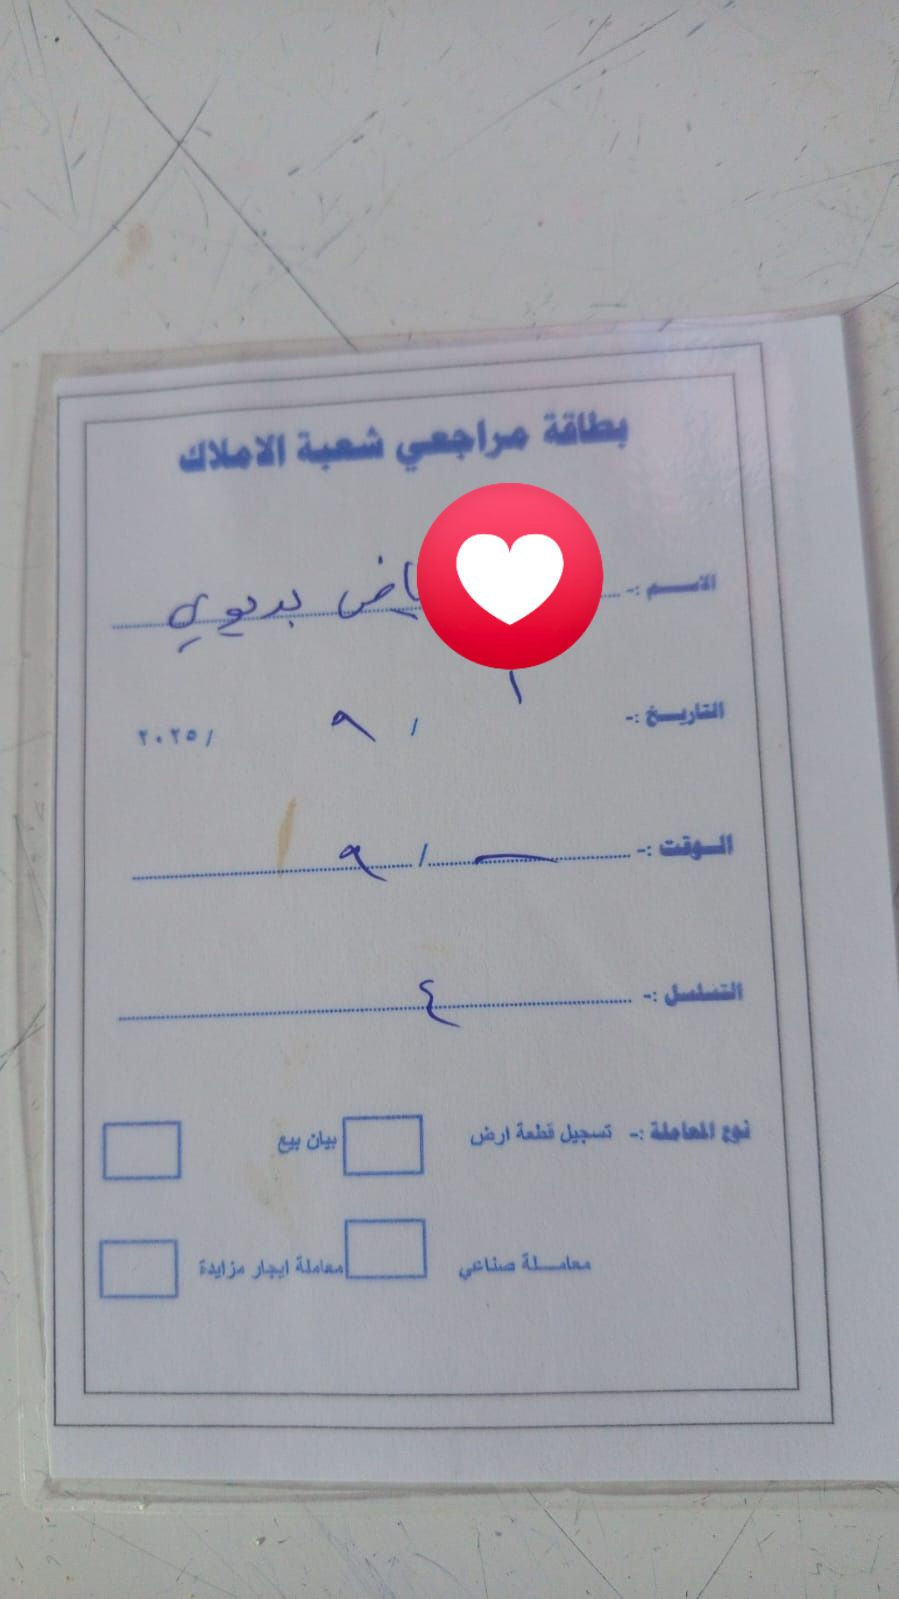 بطاقة مراجعي شعبة الاملاك
الاسم :- ياض بديوي
التاريخ :- ١ / ٩ / ٢٠٢٥
الوقت :- — / ٩
التسلسل :- ٤
نوع المعاملة :- تسجيل قطعة ارض بيان بيع
معاملة صناعي معاملة ايجار مزايدة